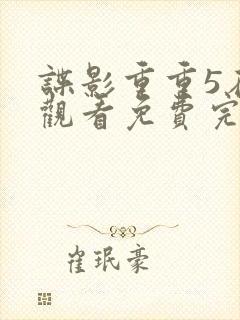 諜影重重5
觀看免費完
崔珉豪